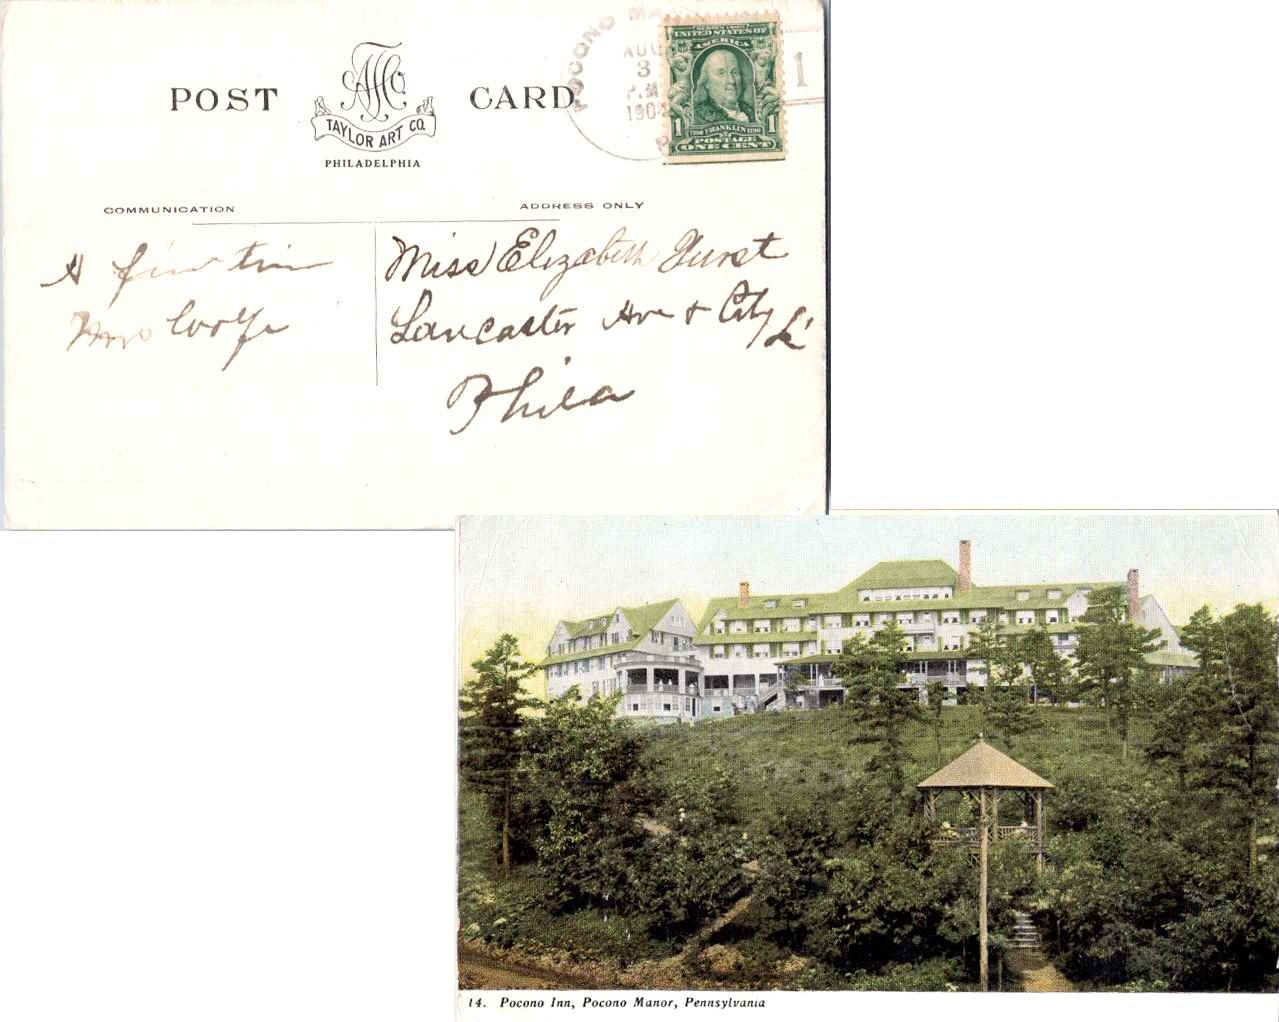 POST CARD
TAYLOR ART CO.
PHILADELPHIA
POCONO MA
AUG
3
P.M.
190
P
1
UNITED STATES OF
AMERICA
1 FRANKLIN 1
POSTAGE
ONE CENT
COMMUNICATION
ADDRESS ONLY
A fine time
Mrs Wolfe
Miss Elizabeth Hurst
Lancaster Ave + City L
Phila
14. Pocono Inn, Pocono Manor, Pennsylvania